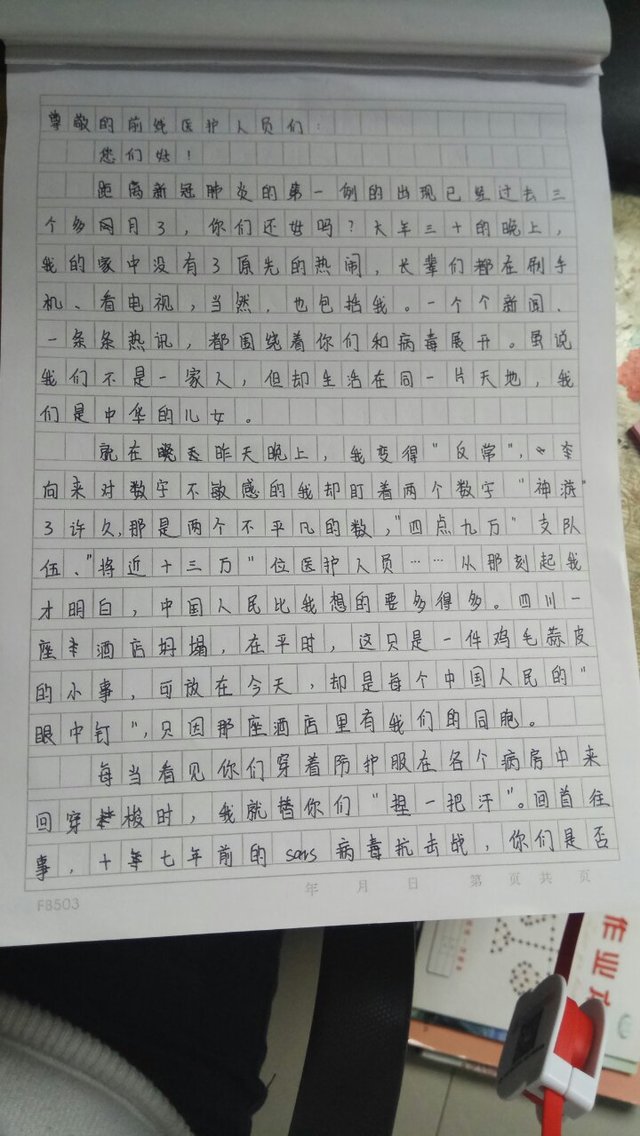 尊敬的前线医护人员们：
您们好！
距离新冠肺炎的第一例的出现已经过去三
个多月了，你们还好吗？大年三十的晚上，
我的家中没有了原先的热闹，长辈们都在刷手
机、看电视，当然，也包括我。一个个新闻、
一条条热讯，都围绕着你们和病毒展开。虽说
我们不是一家人，但却生活在同一片天地，我
们是中华的儿女。
就在昨天晚上，我变得“反常”，
向来对数字不敏感的我却盯着两个数字“神游”
了许久，那是两个不平凡的数，“四点九万”支队
伍、“将近十三万”位医护人员……从那刻起我
才明白，中国人民比我想的要多得多。四川一
座酒店坍塌，在平时，这只是一件鸡毛蒜皮
的小事，可放在今天，却是每个中国人民的“
眼中钉”，只因那座酒店里有我们的同胞。
每当看见你们穿着防护服在各个病房中来
回穿梭时，我就替你们“捏一把汗”。回首往
事，十七年前的sars病毒抗击战，你们是否
年 月 日 第 页 共 页
FB503
作业